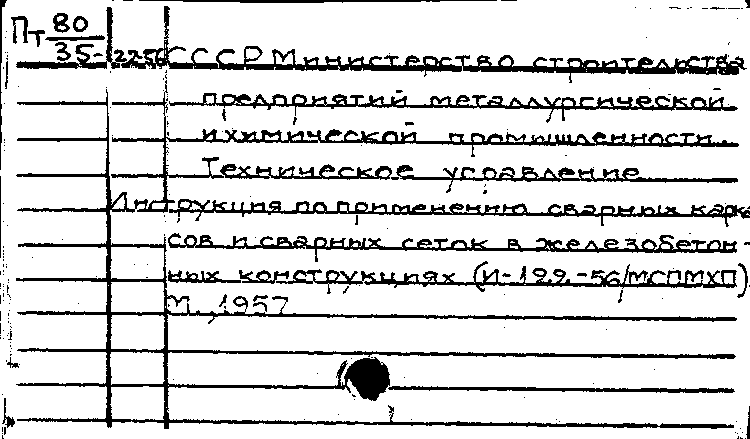 Пт 80
35-2256 СССР Министерство строительства
предприятий металлургической
и химической промышленности.
Техническое управление
Инструкция по применению сварных карка
сов и сварных сеток в железобетон-
ных конструкциях (И-129-56/МСПМХП)
М., 1957